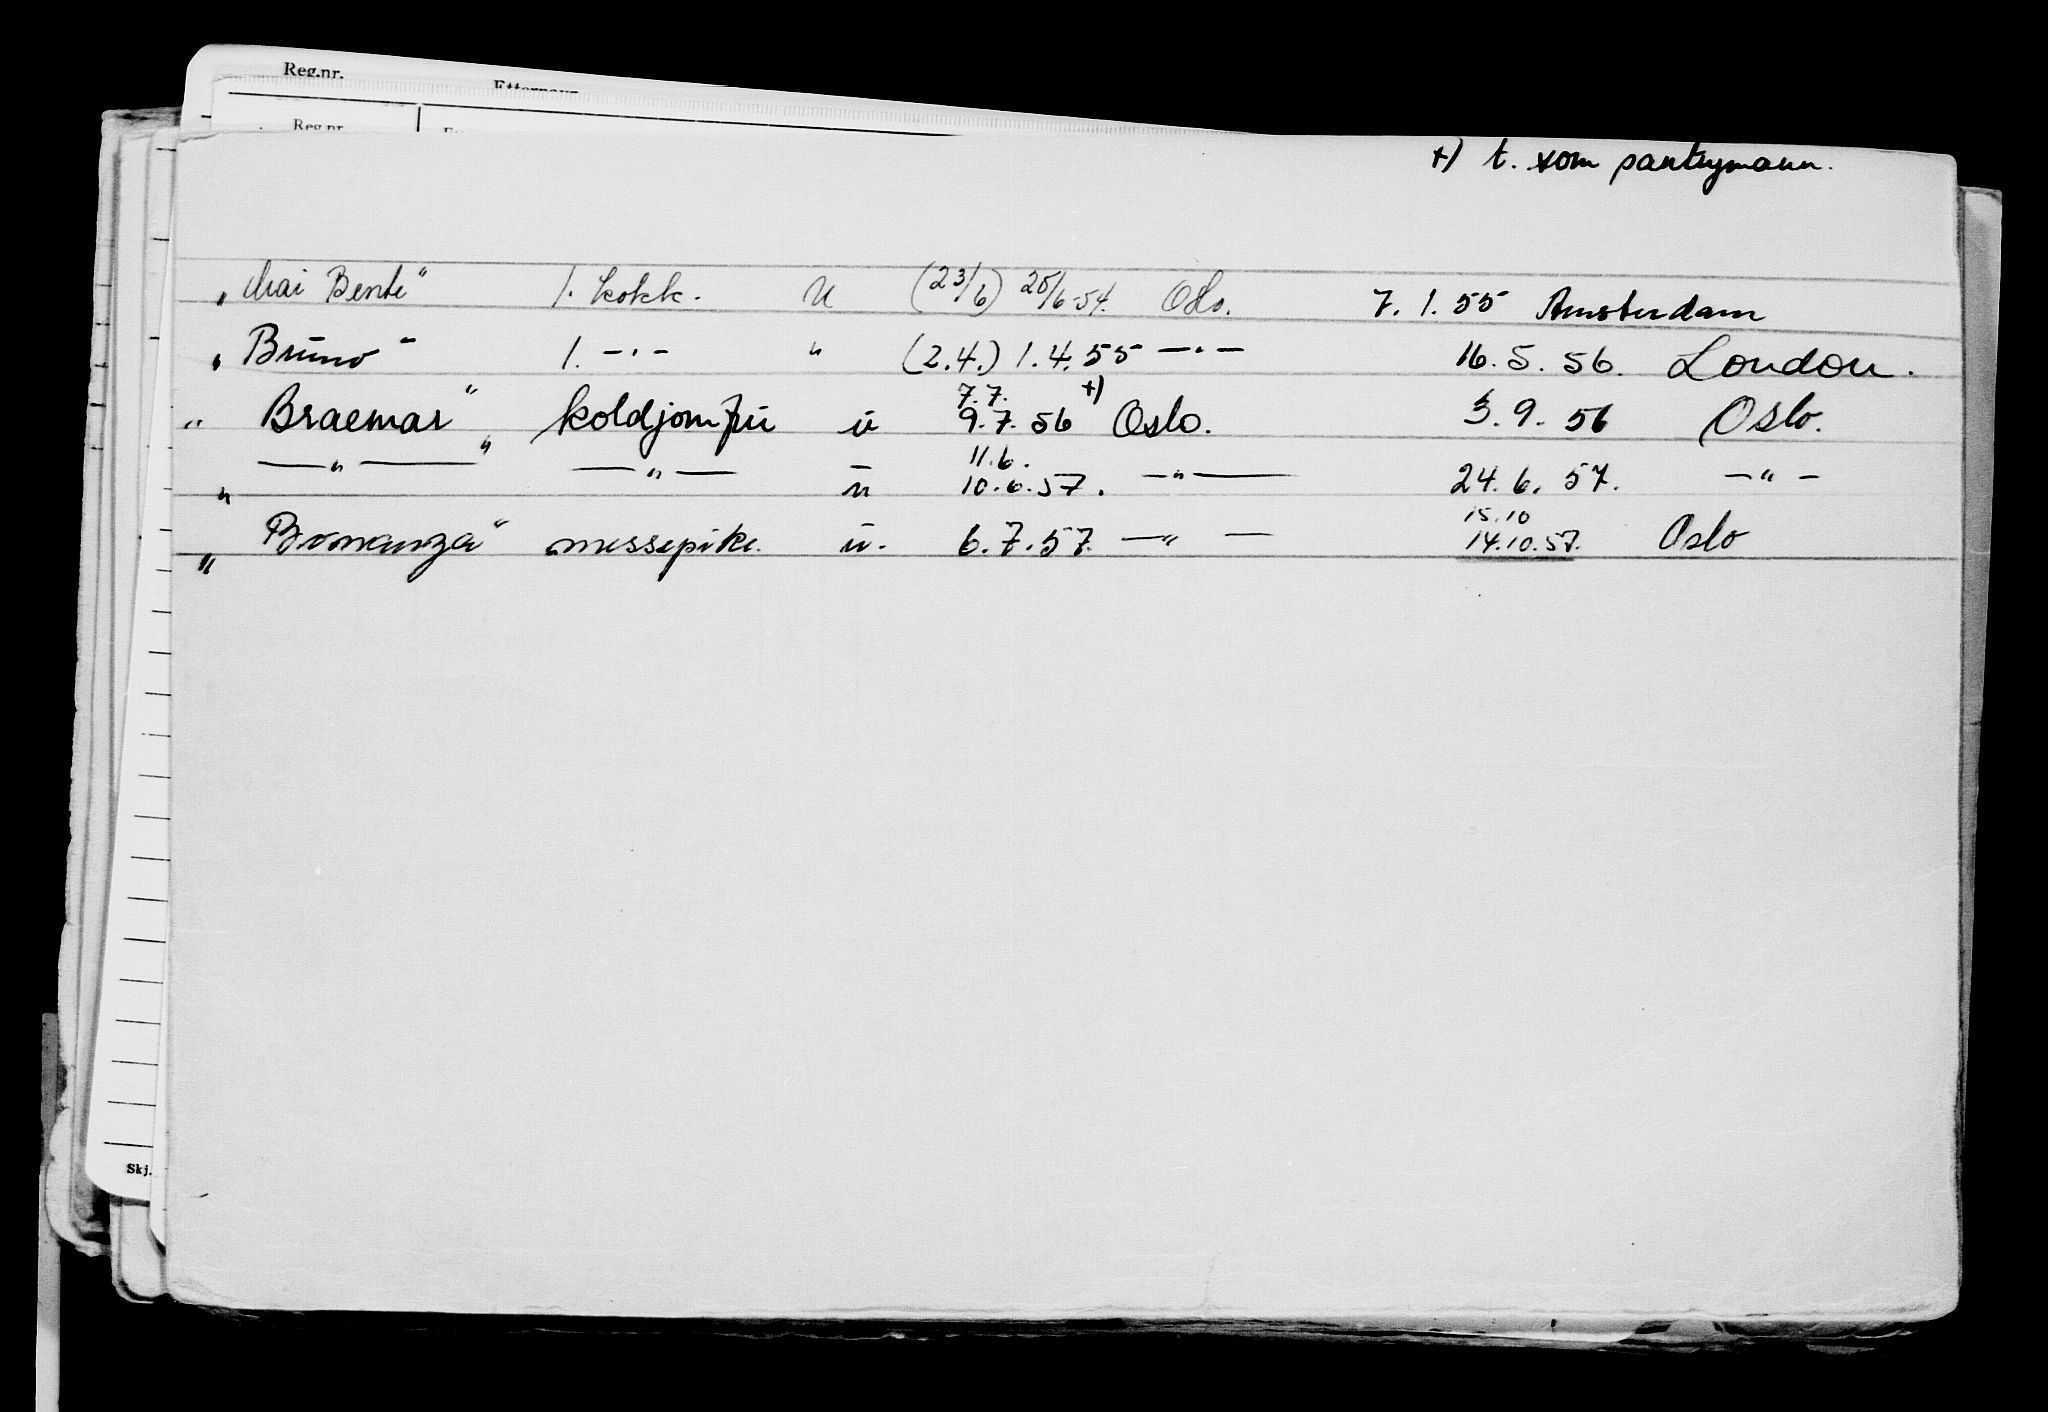 Reg.nr.
Etternavn
Reg.nr.
+) t. som pantrymann.
„Mai Bente" 1. kokk. u (23/6) 25/6-54. Oslo. 7. 1. 55 Amsterdam
„Bruno" 1. —"— " (2.4.) 1.4.55 —"— 16. 5. 56. London.
7.7. +)
„Braemar" koldjomfru u 9.7.56 Oslo. 3. 9. 56 Oslo.
11.6.
„—"—" —"— u 10.6.57. —"— 24. 6. 57. —"—
15.10
„Bonanza" messepike. u. 6.7.57. —"— 14.10.57. Oslo
Skj.